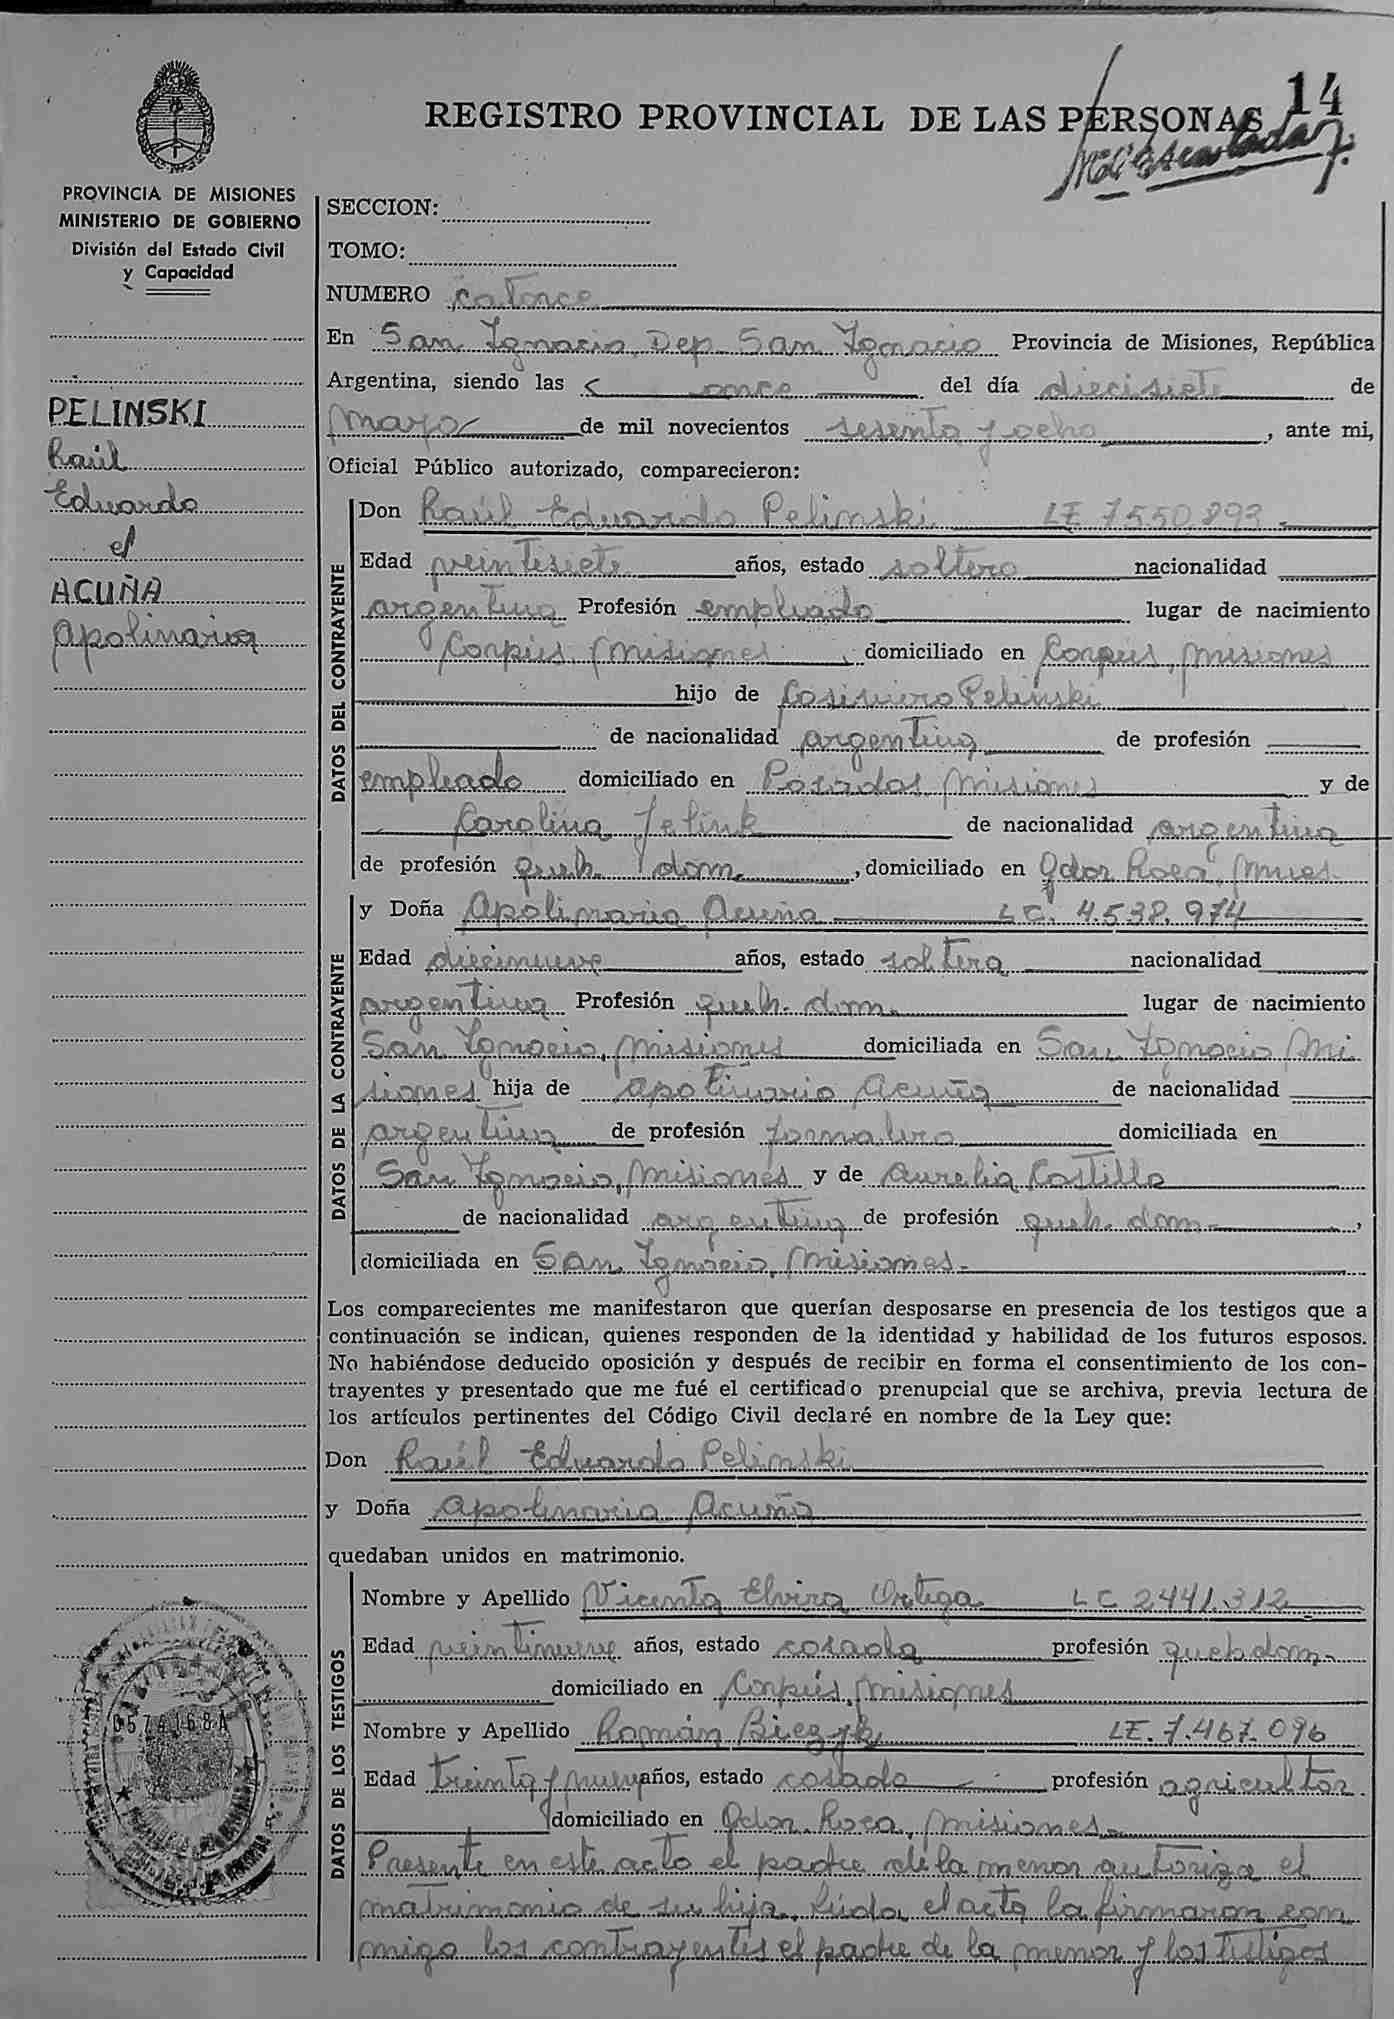 REGISTRO PROVINCIAL DE LAS PERSONAS 14
PROVINCIA DE MISIONES
MINISTERIO DE GOBIERNO
División del Estado Civil
y Capacidad
PELINSKI
Raúl
Eduardo
e/
ACUÑA
Apolinaria
SECCION:
TOMO:
NUMERO catorce
En San Ignacio, Dep. San Ignacio Provincia de Misiones, República
Argentina, siendo las once del día diecisiete de
mayo de mil novecientos sesenta y ocho, ante mi,
Oficial Público autorizado, comparecieron:
DATOS DEL CONTRAYENTE
Don Raúl Eduardo Pelinski LE 7550.893.
Edad veintisiete años, estado soltero nacionalidad
argentina Profesión empleado lugar de nacimiento
Corpus, Misiones, domiciliado en Corpus, Misiones
hijo de Casimiro Pelinski
de nacionalidad argentina de profesión
empleado domiciliado en Posadas, Misiones y de
Carolina Jelink de nacionalidad argentina
de profesión queh. dom., domiciliado en Gdor Roca, Mnes.
DATOS DE LA CONTRAYENTE
y Doña Apolinaria Acuña LC. 4.538.974
Edad diecinueve años, estado soltera nacionalidad
argentina Profesión queh. dom. lugar de nacimiento
San Ignacio, Misiones domiciliada en San Ignacio Mi
siones hija de Apolinario Acuña de nacionalidad
argentina de profesión jornalero domiciliada en
San Ignacio, Misiones y de Aurelia Castillo
de nacionalidad argentina de profesión queh. dom.,
domiciliada en San Ignacio, Misiones.
Los comparecientes me manifestaron que querían desposarse en presencia de los testigos que a
continuación se indican, quienes responden de la identidad y habilidad de los futuros esposos.
No habiéndose deducido oposición y después de recibir en forma el consentimiento de los con-
trayentes y presentado que me fué el certificado prenupcial que se archiva, previa lectura de
los artículos pertinentes del Código Civil declaré en nombre de la Ley que:
Don Raúl Eduardo Pelinski
y Doña Apolinaria Acuña
quedaban unidos en matrimonio.
DATOS DE LOS TESTIGOS
Nombre y Apellido Vicenta Elvira Ortega LC 2441.312
Edad veintinueve años, estado casada profesión queh dom.
domiciliado en Corpus, Misiones
Nombre y Apellido Román LE. 7.467.096
Edad treinta y nueve años, estado casado profesión agricultor.
domiciliado en Gdor. Roca, Misiones.
Presente en este acto el padre de la menor autoriza el
matrimonio de su hija. Leída el acta la firmaron con
migo los contrayentes el padre de la menor y los testigos